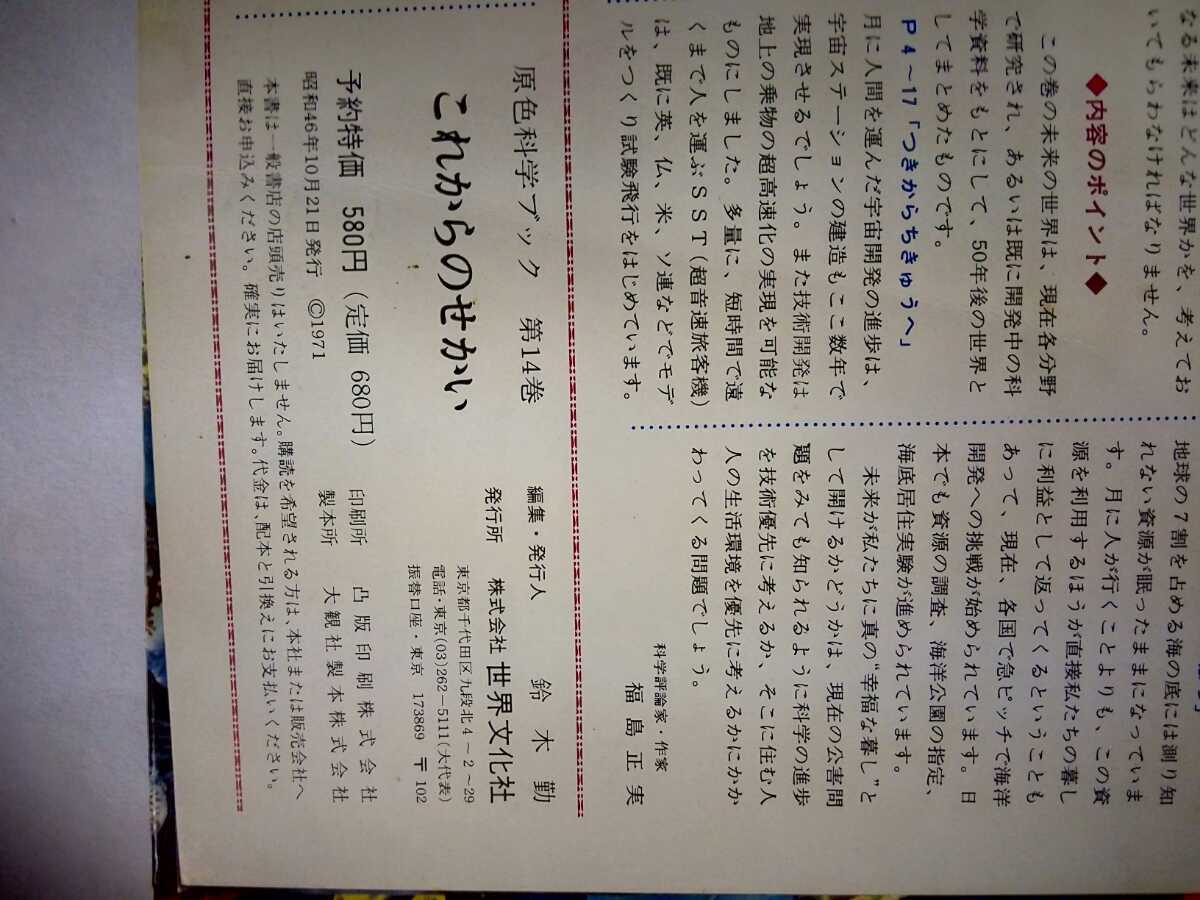 なる未来はどんな世界かを、考えてお
いてもらわなければなりません。
◆内容のポイント◆
この巻の未来の世界は、現在各分野
で研究され、あるいは既に開発中の科
学資料をもとにして、50年後の世界と
してまとめたものです。
P4～17「つきからちきゅうへ」
月に人間を運んだ宇宙開発の進歩は、
宇宙ステーションの建造もここ数年で
実現させるでしょう。また技術開発は
地上の乗物の超高速化の実現を可能な
ものにしました。多量に、短時間で遠
くまで人を運ぶSST(超音速旅客機)
は、既に英、仏、米、ソ連などでモデ
ルをつくり試験飛行をはじめています。
地球の7割を占める海の底には測り知
れない資源が眠ったままになっていま
す。月に人が行くことよりも、この資
源を利用するほうが直接私たちの暮し
に利益として返ってくるということも
あって、現在、各国で急ピッチで海洋
開発への挑戦が始められています。日
本でも資源の調査、海洋公園の指定、
海底居住実験が進められています。
未来が私たちに真の“幸福な暮し”と
して開けるかどうかは、現在の公害問
題をみても知られるように科学の進歩
を技術優先に考えるか、そこに住む人
人の生活環境を優先に考えるかにかか
わってくる問題でしょう。
科学評論家・作家
福島正実
原色科学ブック 第14巻
これからのせかい
予約特価 580円(定価 680円)
昭和46年10月21日発行 ©1971
編集・発行人 鈴木勤
発行所 株式会社 世界文化社
東京都千代田区九段北4-2~29
電話・東京(03)262-5111(大代表)
振替口座・東京 173869 〒102
印刷所 凸版印刷株式会社
製本所 大観社製本株式会社
本書は一般書店の店頭売りはいたしません。購読を希望される方は、本社または販売会社へ
直接お申込みください。確実にお届けします。代金は、配本と引換えにお支払いください。